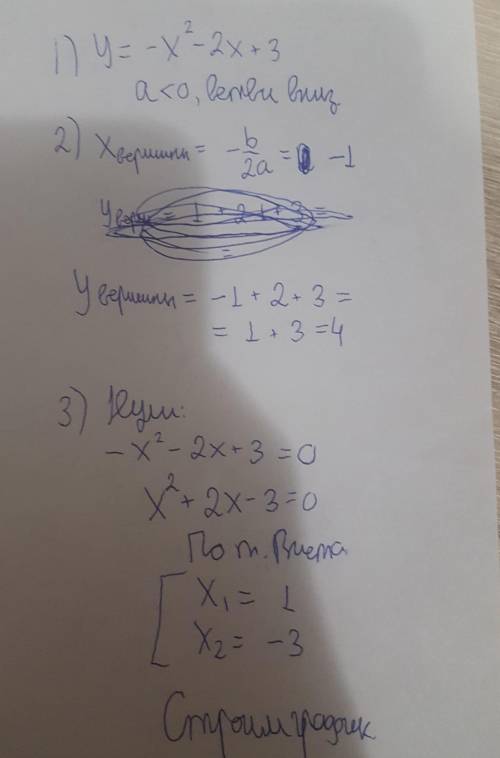 1) y = -x² - 2x + 3
a < 0, ветви вниз
2) x вершины = -b/2a = -1
y вершины = -1 + 2 + 3 =
= 1 + 3 = 4
3) Нули:
-x² - 2x + 3 = 0
x² + 2x - 3 = 0
По т. Виета
[ x₁ = 1
x₂ = -3
Строим график